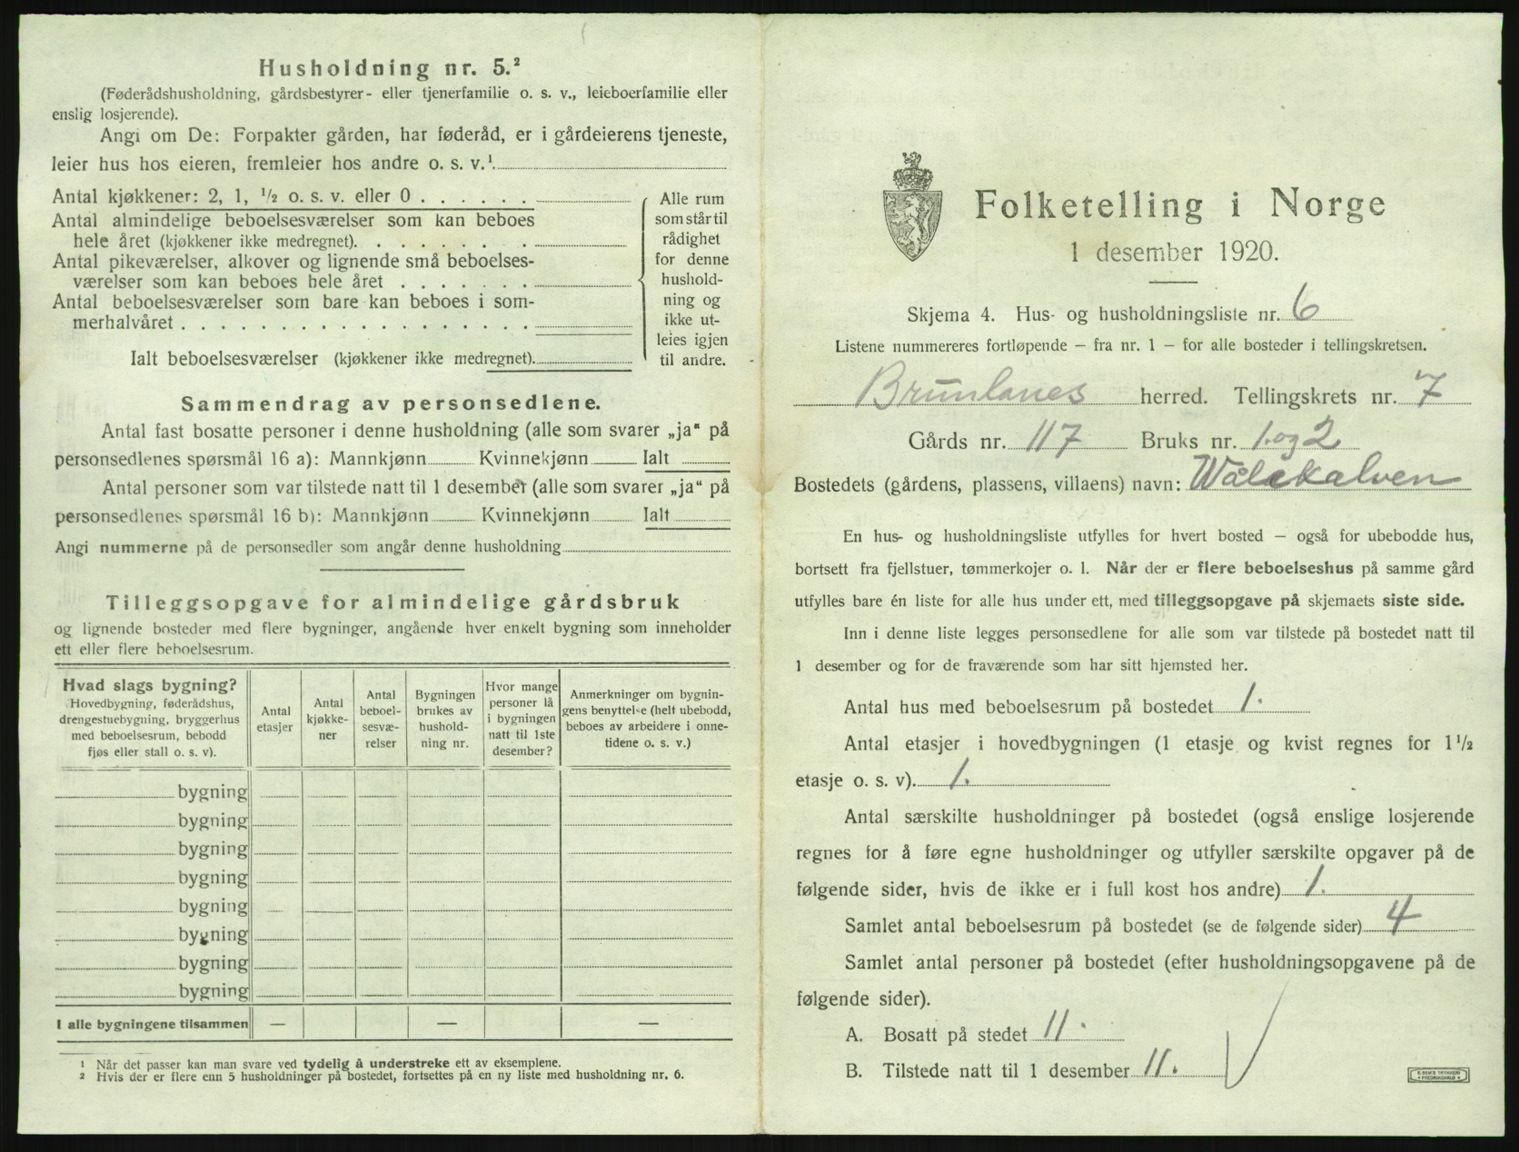 Husholdning nr. 5.²
(Føderådshusholdning, gårdsbestyrer- eller tjenerfamilie o. s. v., leieboerfamilie eller
enslig losjerende).
Angi om De: Forpakter gården, har føderåd, er i gårdeierens tjeneste,
leier hus hos eieren, fremleier hos andre o. s. v.¹
Antal kjøkkener: 2, 1, ½ o. s. v. eller 0
Antal almindelige beboelsesværelser som kan beboes
hele året (kjøkkener ikke medregnet).
Antal pikeværelser, alkover og lignende små beboelses-
værelser som kan beboes hele året
Antal beboelsesværelser som bare kan beboes i som-
merhalvåret
Ialt beboelsesværelser (kjøkkener ikke medregnet).
Alle rum
som står til
rådighet
for denne
hushold-
ning og
ikke ut-
leies igjen
til andre.
Sammendrag av personsedlene.
Antal fast bosatte personer i denne husholdning (alle som svarer „ja“ på
personsedlenes spørsmål 16 a): Mannkjønn Kvinnekjønn Ialt
Antal personer som var tilstede natt til 1 desember (alle som svarer „ja“ på
personsedlenes spørsmål 16 b): Mannkjønn Kvinnekjønn Ialt
Angi nummerne på de personsedler som angår denne husholdning
Tilleggsopgave for almindelige gårdsbruk
og lignende bosteder med flere bygninger, angående hver enkelt bygning som inneholder
ett eller flere beboelsesrum.
Hvad slags bygning?
Hovedbygning, føderådshus,
drengestuebygning, bryggerhus
med beboelsesrum, bebodd
fjøs eller stall o. s. v).
Antal
etasjer
Antal
kjøkke-
ner
Antal
beboel-
sesvæ-
relser
Bygningen
brukes av
hushold-
ning nr.
Hvor mange
personer lå
i bygningen
natt til 1ste
desember?
Anmerkninger om bygnin-
gens benyttelse (helt ubebodd,
beboes av arbeidere i onne-
tidene o. s. v.)
bygning
bygning
bygning
bygning
bygning
bygning
bygning
bygning
I alle bygningene tilsammen — — —
¹ Når det passer kan man svare ved tydelig å understreke ett av eksemplene.
² Hvis der er flere enn 5 husholdninger på bostedet, fortsettes på en ny liste med husholdning nr. 6.
Folketelling i Norge
1 desember 1920.
Skjema 4. Hus- og husholdningsliste nr. 6
Listene nummereres fortløpende — fra nr. 1 — for alle bosteder i tellingskretsen.
Brunlanes herred. Tellingskrets nr. 7
Gårds nr. 117 Bruks nr. 1. og 2
Bostedets (gårdens, plassens, villaens) navn: Wålekalven
En hus- og husholdningsliste utfylles for hvert bosted — også for ubebodde hus,
bortsett fra fjellstuer, tømmerkojer o. l. Når der er flere beboelseshus på samme gård
utfylles bare én liste for alle hus under ett, med tilleggsopgave på skjemaets siste side.
Inn i denne liste legges personsedlene for alle som var tilstede på bostedet natt til
1 desember og for de fraværende som har sitt hjemsted her.
Antal hus med beboelsesrum på bostedet 1.
Antal etasjer i hovedbygningen (1 etasje og kvist regnes for 1½
etasje o. s. v). 1.
Antal særskilte husholdninger på bostedet (også enslige losjerende
regnes for å føre egne husholdninger og utfyller særskilte opgaver på de
følgende sider, hvis de ikke er i full kost hos andre) 1.
Samlet antal beboelsesrum på bostedet (se de følgende sider) 4
Samlet antal personer på bostedet (efter husholdningsopgavene på de
følgende sider).
A. Bosatt på stedet 11.
B. Tilstede natt til 1 desember 11.